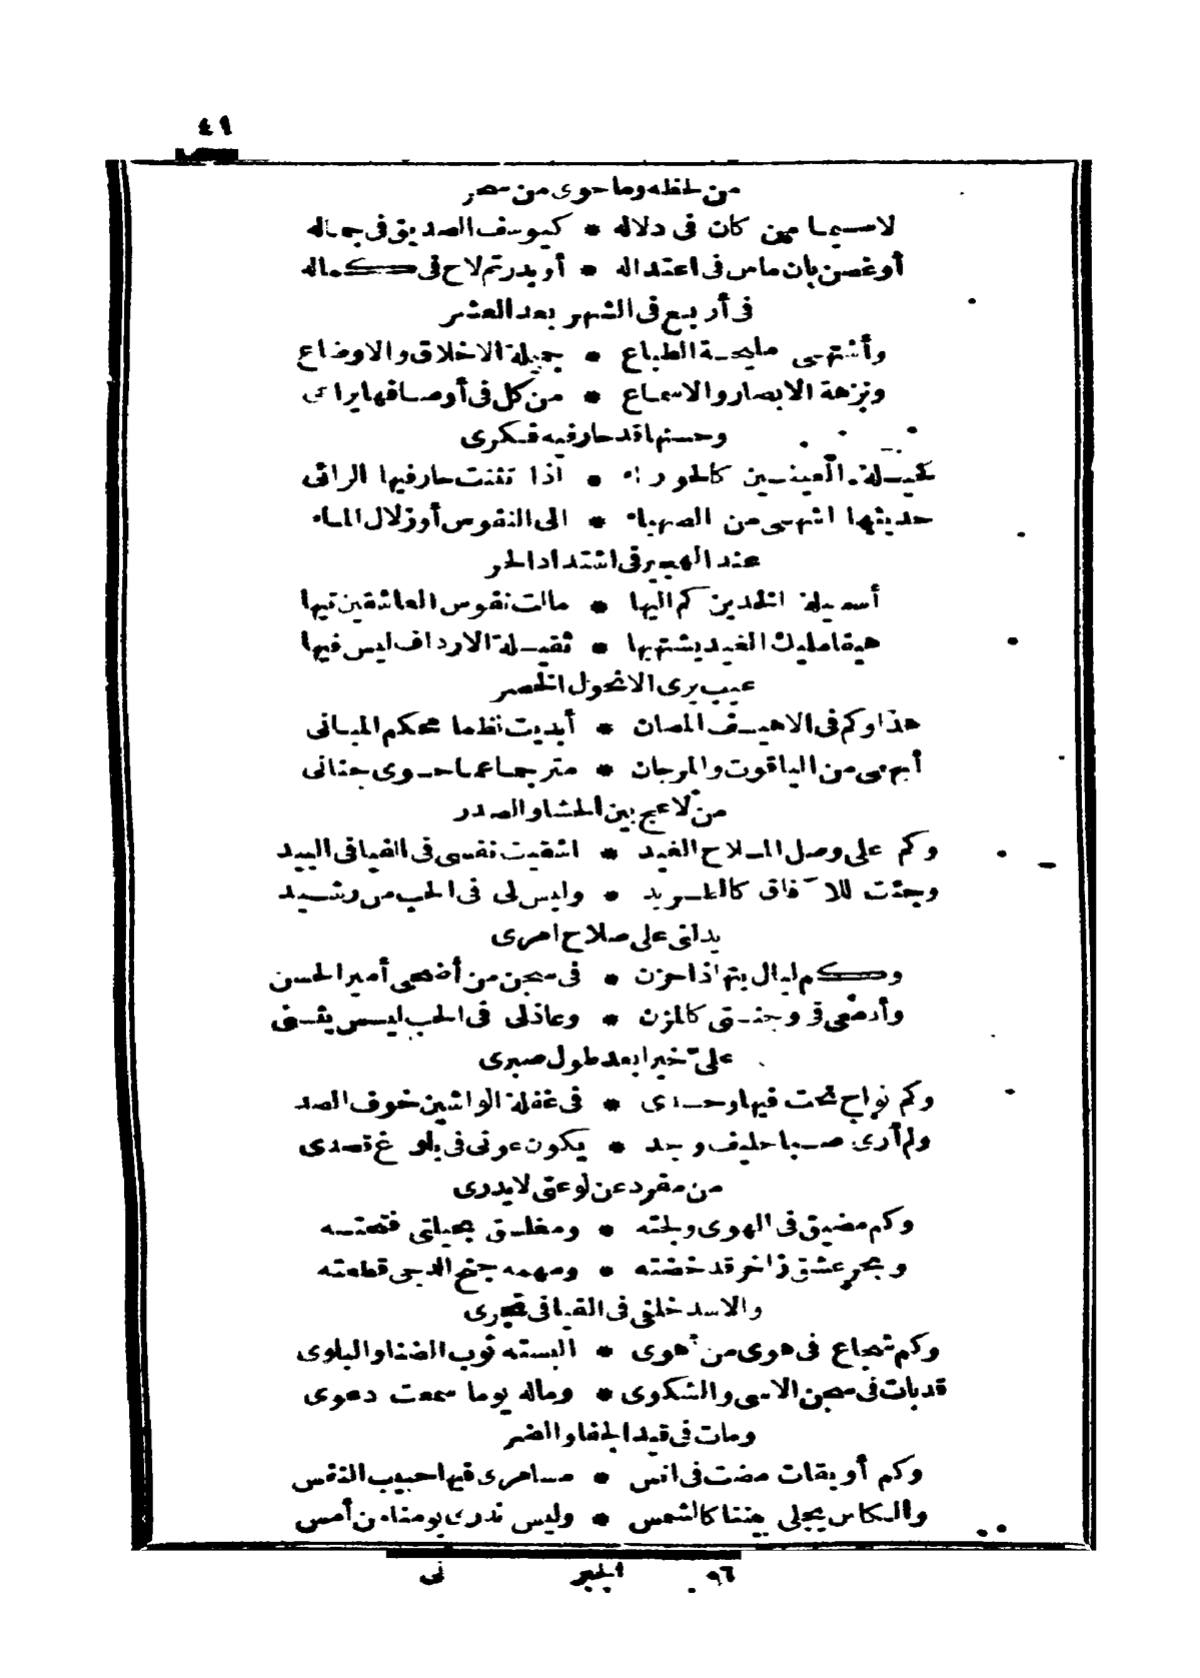 ٤٩
من لحظه وما حوى من سحر
لا سيما من كان فى دلاله * كيوسف الصديق فى جماله
أو غصن بان ماس فى اعتداله * أو بدر تم لاح فى كماله
فى أربع فى الشهر بعد العشر
وأشتهى مليحة الطباع * جميلة الاخلاق والاوضاع
ونزهة الابصار والاسماع * من كل فى أوصافها يراعى
وحسنها قد حار فيه فكرى
كحيلة العينين كالحوراء * اذا تثنت حار فيها الرائى
حديثها اشهى من الصهباء * الى النفوس أو زلال الماء
عند الهجير فى اشتداد الحر
أسيلة الخدين كم اليها * مالت نفوس العاشقين تيها
هيفا مليك الغيد يشتهيها * ثقيلة الارداف ليس فيها
عيب يرى الا نحول الخصر
هذا وكم فى الاهيف المصان * أبديت نظما محكم المبانى
أبهى من الياقوت والمرجان * مترجما عما حوى جنانى
من لاعج بين الحشا والصدر
وكم على وصل الملاح الغيد * اشقيت نفسى فى الفيافى البيد
وجئت للآفاق كالطريد * وليس لى فى الحب من رشيد
يدلنى على صلاح امرى
وكم ليال بتها ذا حزن * فى سجن من أضحى أمير الحسن
وأدمعى فى وجنتى كالمزن * وعاذلى فى الحب ليس يثنى
علىّ خيرا بعد طول صبرى
وكم نواح نحت فيها وحدى * فى غفلة الواشين خوف الصد
ولم أرى صبا حليف وجد * يكون عونى فى بلوغ قصدى
من مفرد عن لوعتى لا يدرى
وكم مضيق فى الهوى ولجته * ومغلق بحيلتى فتحته
وبحر عشق زاخر قد خضته * ومهمه جنح الدجى قطعته
والاسد خلفى فى الفيافى تجرى
وكم شجاع فى هوى من أهوى * البسته ثوب الضنا والبلوى
قد بات فى سجن الاسى والشكوى * وماله يوما سمعت دعوى
ومات فى قيد الجفا والضر
وكم أويقات مضت فى انس * مسامرى فيها حبيب النفس
والكاس يجلى بيننا كالشمس * وليس ندرى يومنا من أمس
٩٦ الجبر نى